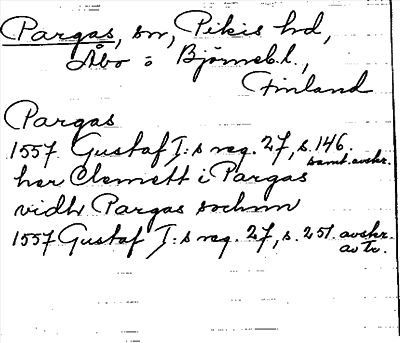 Pargas, sn, Pikis hd,
Åbo o Björneb. l.,
Finland
Pargas
1557 Gustaf I:s reg. 27, s. 146.
samt. avskr.
her Clemett i Pargas
vidh Pargas sochnn
1557 Gustaf I:s reg. 27, s. 251 avskr.
av Tr.